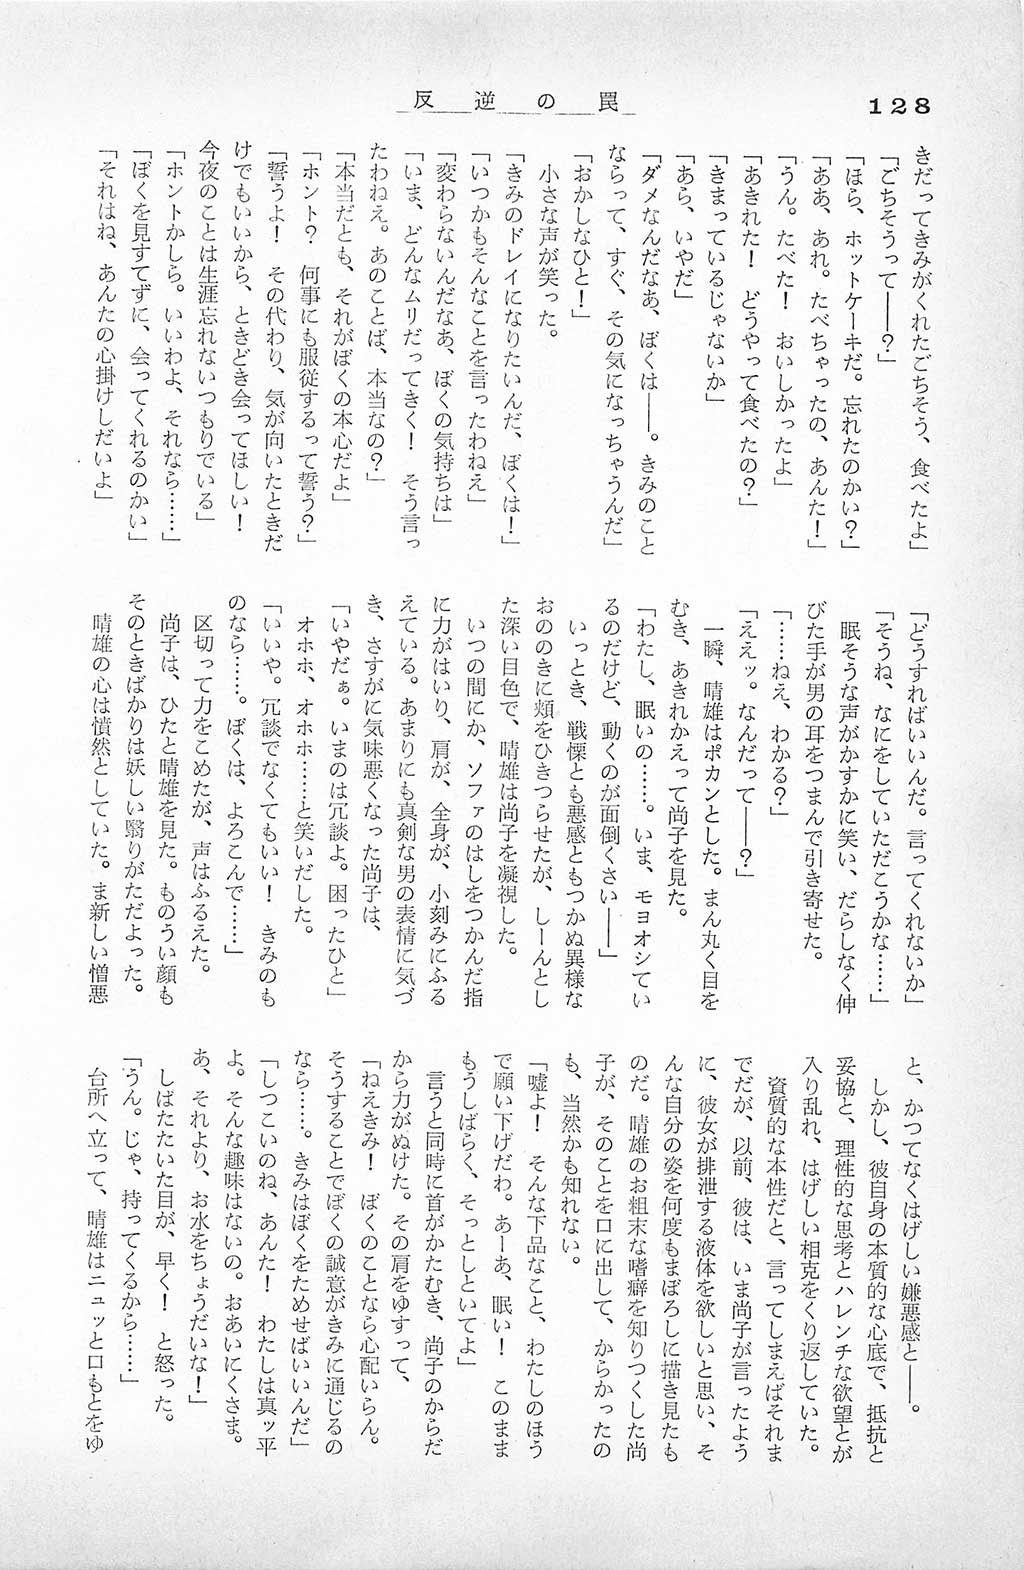 128
反逆の罠
きだってきみがくれたごちそう、食べたよ」
「ごちそうって――？」
「ほら、ホットケーキだ。忘れたのかい？」
「ああ、あれ。たべちゃったの、あんた！」
「うん。たべた！　おいしかったよ」
「あきれた！　どうやって食べたの？」
「きまっているじゃないか」
「あら、いやだ」
「ダメなんだなあ、ぼくは――。きみのこと
ならって、すぐ、その気になっちゃうんだ」
「おかしなひと！」
　小さな声が笑った。
「きみのドレイになりたいんだ、ぼくは！」
「いつかもそんなことを言ったわねえ」
「変わらないんだなあ、ぼくの気持ちは」
「いま、どんなムリだってきく！　そう言っ
たわねえ。あのことば、本当なの？」
「本当だとも、それがぼくの本心だよ」
「ホント？　何事にも服従するって誓う？」
「誓うよ！　その代わり、気が向いたときだ
けでもいいから、ときどき会ってほしい！
今夜のことは生涯忘れないつもりでいる」
「ホントかしら。いいわよ、それなら……」
「ぼくを見すてずに、会ってくれるのかい」
「それはね、あんたの心掛けしだいよ」
「どうすればいいんだ。言ってくれないか」
「そうね、なにをしていただこうかな……」
　眠そうな声がかすかに笑い、だらしなく伸
びた手が男の耳をつまんで引き寄せた。
「……ねえ、わかる？」
「ええッ。なんだって――？」
　一瞬、晴雄はポカンとした。まん丸く目を
むき、あきれかえって尚子を見た。
「わたし、眠いの……。いま、モヨオシてい
るのだけど、動くのが面倒くさい――」
　いっとき、戦慄とも悪感ともつかぬ異様な
おののきに頬をひきつらせたが、しーんとし
た深い目色で、晴雄は尚子を凝視した。
　いつの間にか、ソファのはしをつかんだ指
に力がはいり、肩が、全身が、小刻みにふる
えている。あまりにも真剣な男の表情に気づ
き、さすがに気味悪くなった尚子は、
「いやだぁ。いまのは冗談よ。困ったひと」
　オホホ、オホホ……と笑いだした。
「いいや。冗談でなくてもいい！　きみのも
のなら……。ぼくは、よろこんで……」
　区切って力をこめたが、声はふるえた。
　尚子は、ひたと晴雄を見た。ものうい顔も
そのときばかりは妖しい翳りがただよった。
　晴雄の心は憤然としていた。ま新しい憎悪
と、かつてなくはげしい嫌悪感と――。
　しかし、彼自身の本質的な心底で、抵抗と
妥協と、理性的な思考とハレンチな欲望とが
入り乱れ、はげしい相克をくり返していた。
　資質的な本性だと、言ってしまえばそれま
でだが、以前、彼は、いま尚子が言ったよう
に、彼女が排泄する液体を欲しいと思い、そ
んな自分の姿を何度もまぼろしに描き見たも
のだ。晴雄のお粗末な嗜癖を知りつくした尚
子が、そのことを口に出して、からかったの
も、当然かも知れない。
「嘘よ！　そんな下品なこと、わたしのほう
で願い下げだわ。あーあ、眠い！　このまま
もうしばらく、そっとしといてよ」
　言うと同時に首がかたむき、尚子のからだ
から力がぬけた。その肩をゆすって、
「ねえきみ！　ぼくのことなら心配いらん。
そうすることでぼくの誠意がきみに通じるの
なら……。きみはぼくをためせばいいんだ」
「しつこいのね、あんた！　わたしは真ッ平
よ。そんな趣味はないの。おあいにくさま。
あ、それより、お水をちょうだいな！」
　しばたたいた目が、早く！　と怒った。
「うん。じゃ、持ってくるから……」
　台所へ立って、晴雄はニュッと口もとをゆ